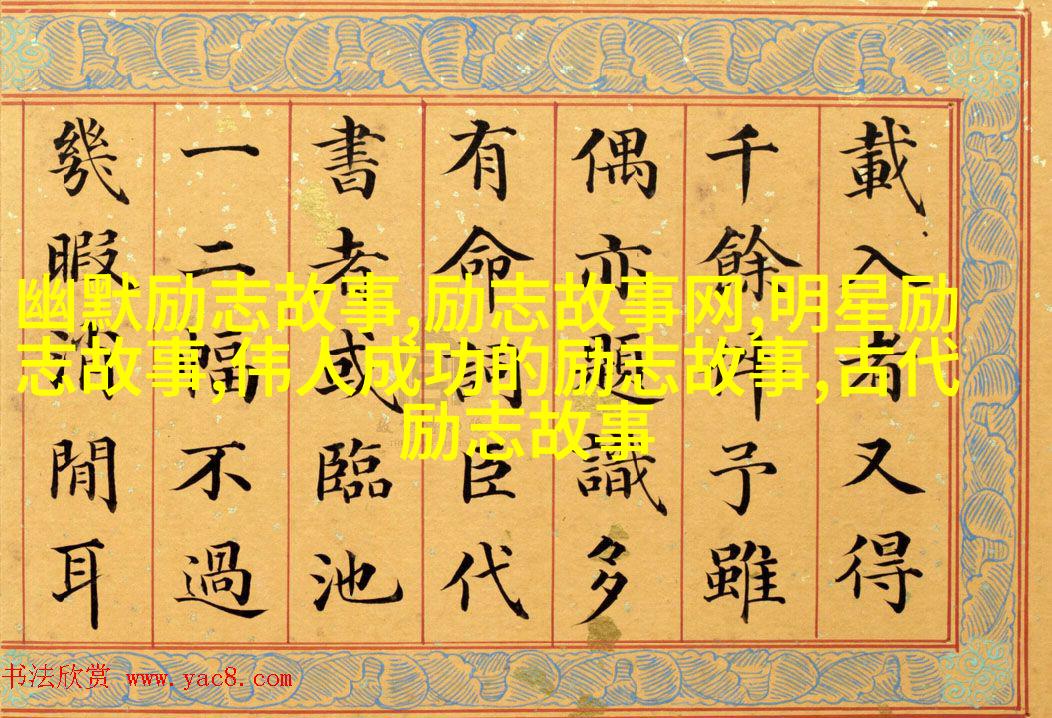 載入者又得
千餘件予雖
偶亦題識多
有命詞臣代
書者或臨池
一二幅不過
幾暇消閒耳
幽默励志故事,励志故事网,明星励
志故事,伟人成功的励志故事,古代
励志故事
书法欣赏 www.yac8.com